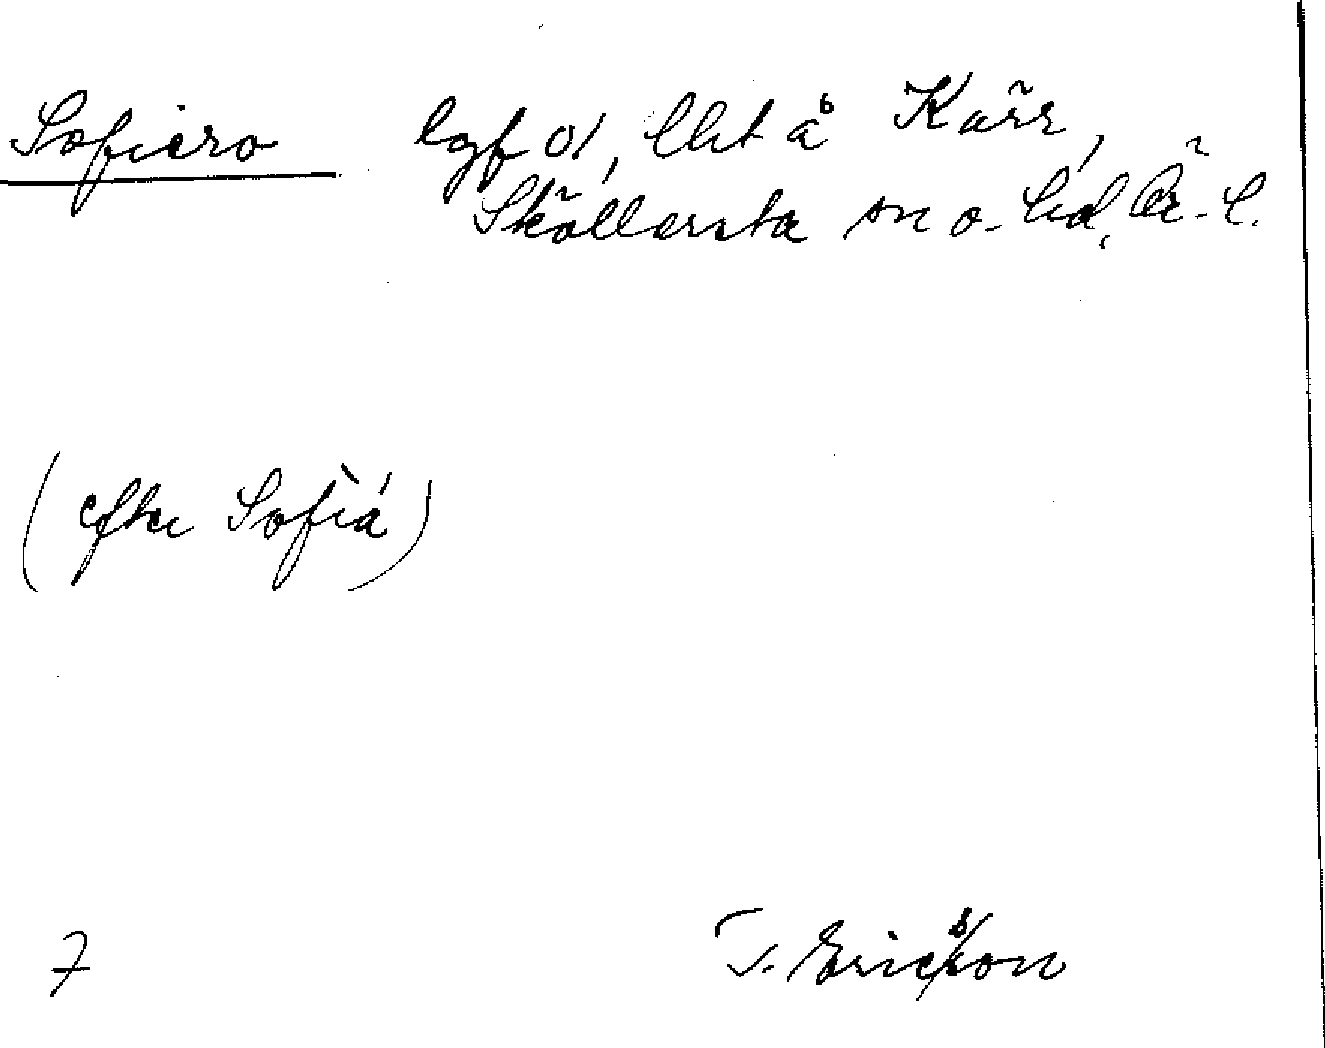 Sofiero lgf o1, lht å Kärr,
Sköllersta sn o. hd, Ör. l.
(efter Sofia)
7
T. Ericsson